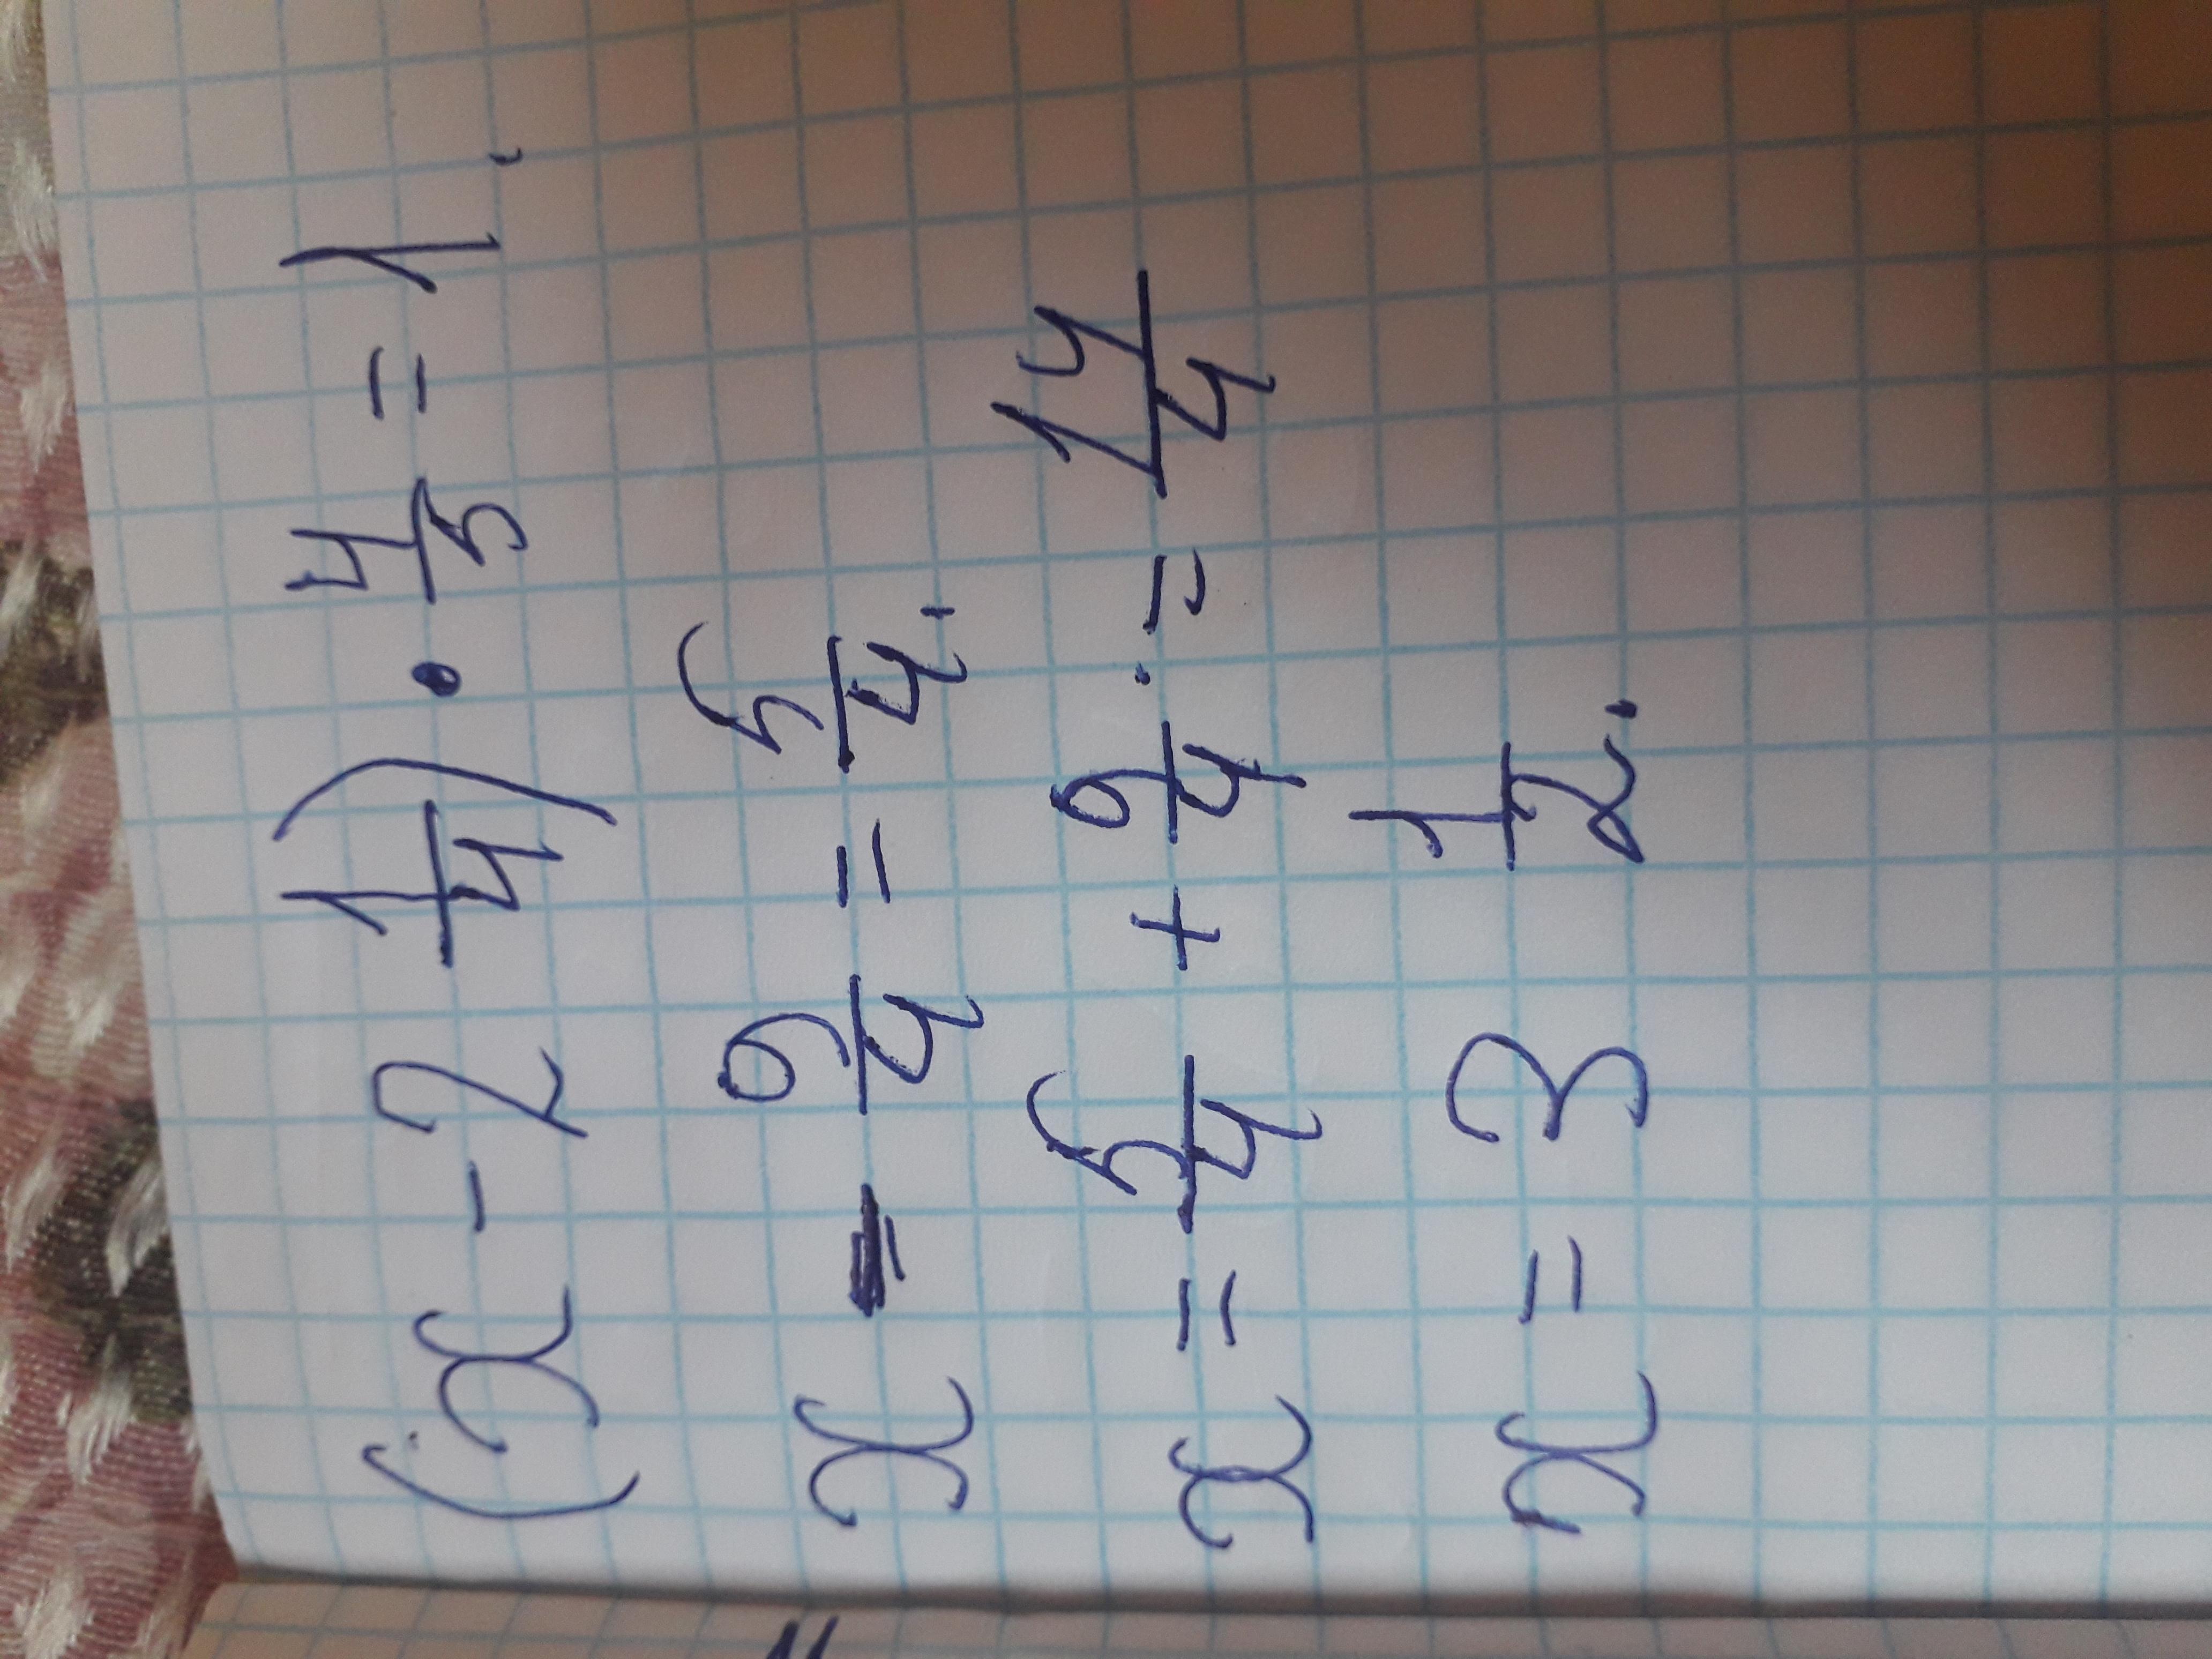 (x - 2 1/4) · 4/5 = 1.
x - 9/4 = 5/4.
x = 5/4 + 9/4. = 14/4
x = 3 1/2.